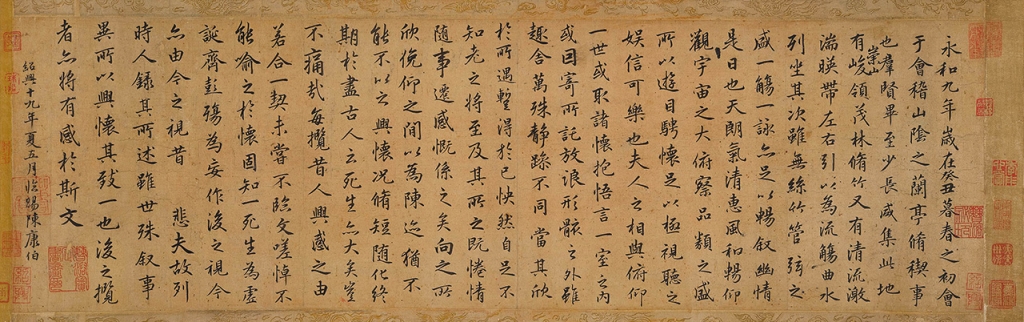 永和九年歲在癸丑暮春之初會
于會稽山陰之蘭亭脩稧事
也羣賢畢至少長咸集此地
有崇山峻領茂林脩竹又有清流激
湍暎帶左右引以為流觴曲水
列坐其次雖無絲竹管弦之
盛一觴一詠亦足以暢叙幽情
是日也天朗氣清惠風和暢仰
觀宇宙之大俯察品類之盛
所以遊目騁懷足以極視聽之
娛信可樂也夫人之相與俯仰
一世或取諸懷抱悟言一室之內
或因寄所託放浪形骸之外雖
趣舍萬殊静躁不同當其欣
於所遇蹔得於己怏然自足不
知老之將至及其所之既惓情
隨事遷感慨係之矣向之所
欣俛仰之間以為陳迹猶不
能不以之興懷況脩短隨化終
期於盡古人云死生亦大矣豈
不痛哉每攬昔人興感之由
若合一契未嘗不臨文嗟悼不
能喻之於懷固知一死生為虛
誕齊彭殤為妄作後之視今
亦由今之視昔 悲夫故列
時人録其所述雖世殊叙事
異所以興懷其致一也後之攬
者亦將有感於斯文
紹興十九年夏五月臨賜陳康伯